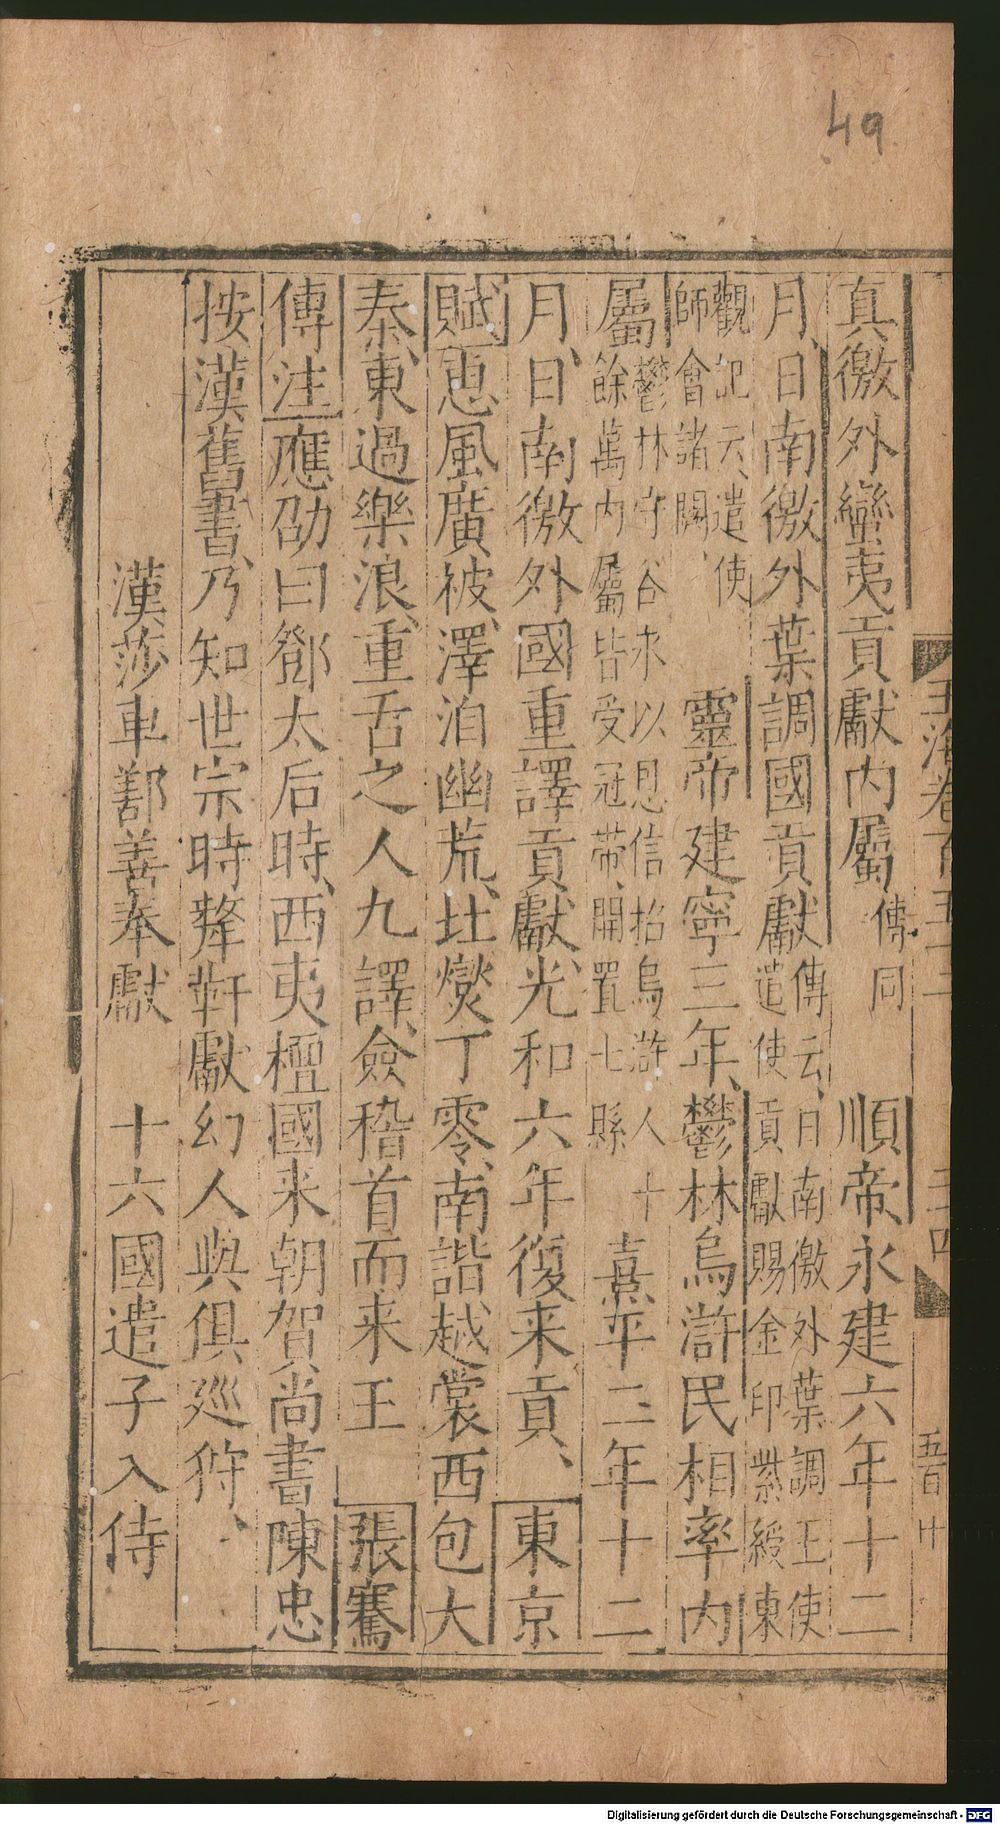 49
真徼外蠻夷貢獻内屬傳同 順帝永建六年十二
月、日南徼外葉調國貢獻傳云、日南徼外葉調王使遣使貢獻賜金印紫綬東
觀記云、遣使師會詣闕、 靈帝建寧三年、鬱林烏滸民相率内
屬鬱林守谷永以恩信招烏滸人十餘萬内屬皆受冠帶、開置七縣 熹平二年十二
月、日南徼外國重譯貢獻、光和六年復来貢、 東京
賦恵風廣被、澤洎幽荒、北燮丁零、南諧越裳西包大
秦、東過樂浪、重舌之人九譯、僉稽首而来王 張騫
傳注應劭曰鄧太后時、西夷檀國来朝賀尚書陳忠
按漢舊書、乃知世宗時犛靬獻幻人與俱廵狩、
漢莎車鄯善奉獻 十六國遣子入侍
玉海卷百五十二
二十四
Digitalisierung gefördert durch die Deutsche Forschungsgemeinschaft - DFG